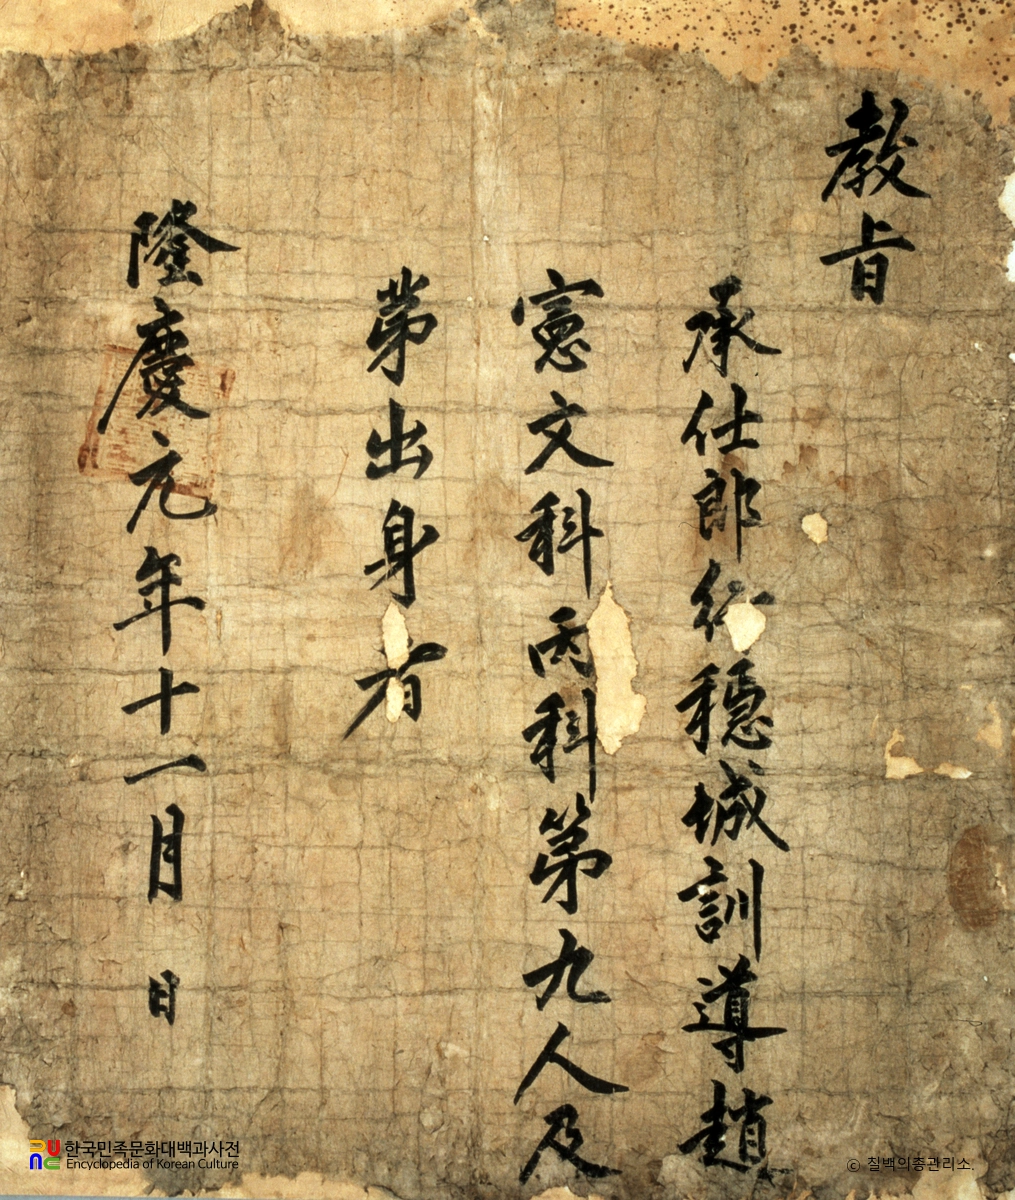 敎旨
承仕郎行穩城訓導趙
憲文科丙科第九人及
第出身者
隆慶元年十一月 日
한국민족문화대백과사전
Encyclopedia of Korean Culture
© 칠백의총관리소.